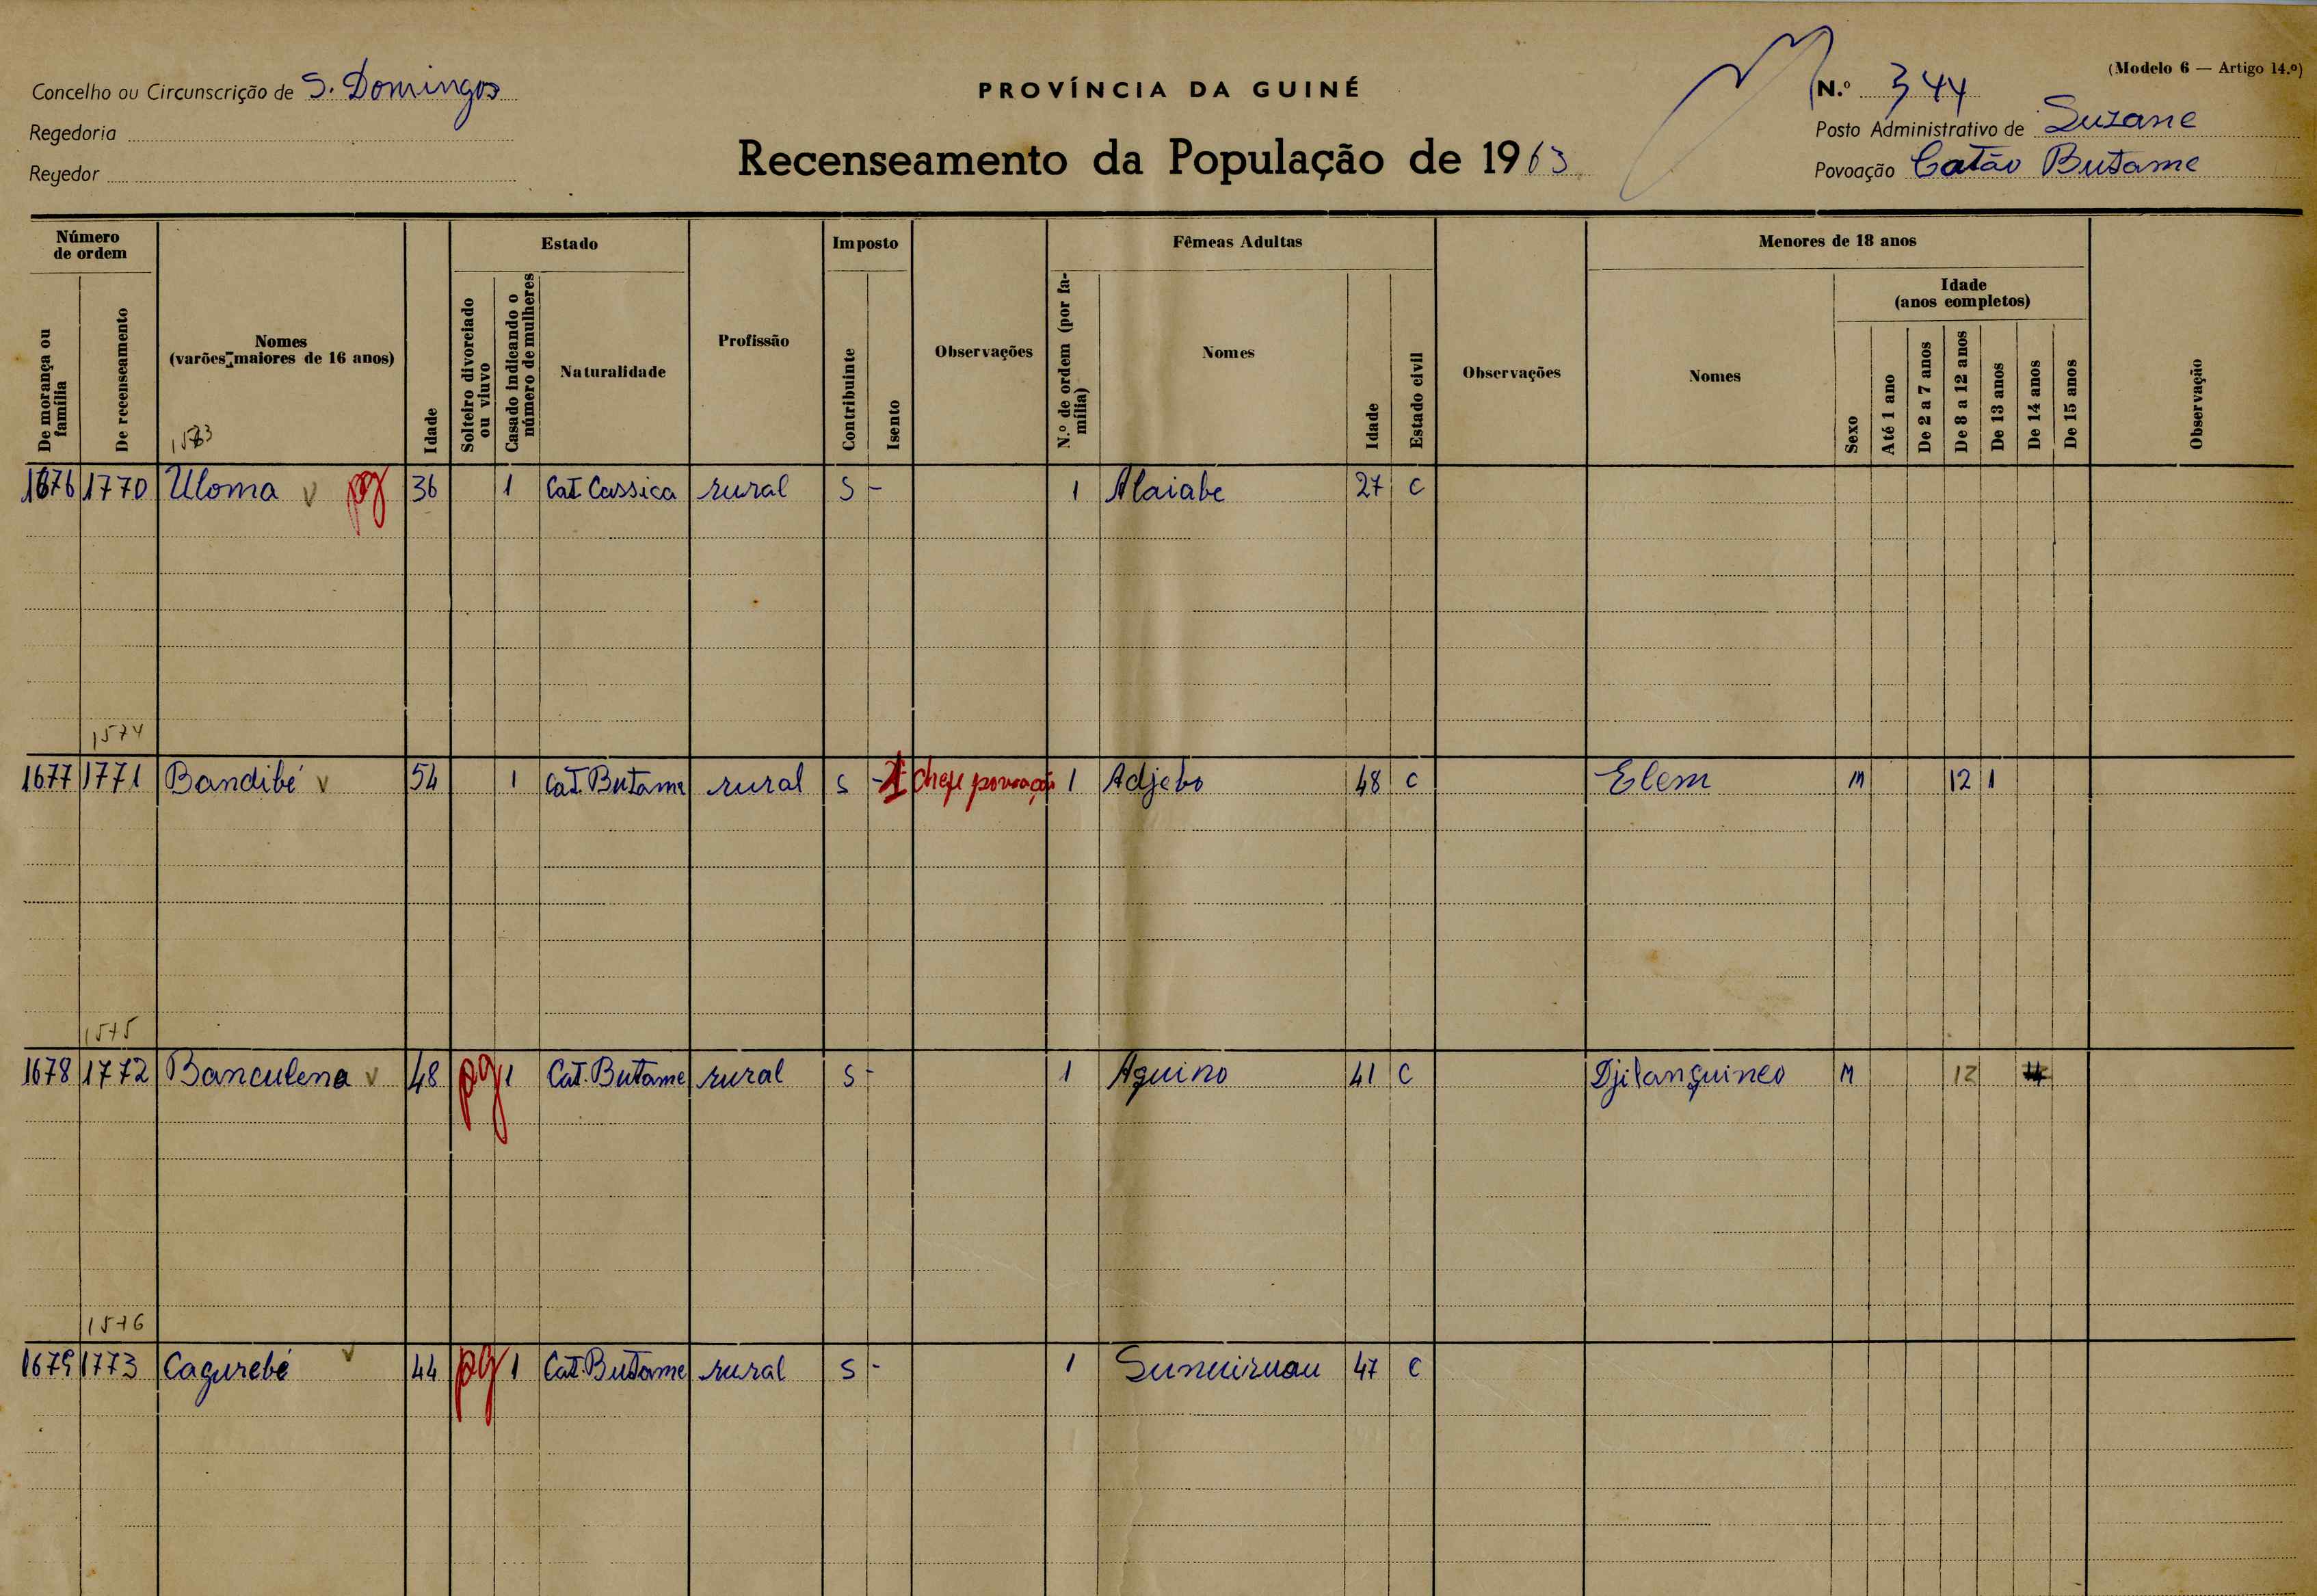 (Modelo 6 — Artigo 14.º)
Concelho ou Circunscrição de S. Domingos
PROVÍNCIA DA GUINÉ
N.º 344
Regedoria
Posto Administrativo de Suzane
Regedor
Recenseamento da População de 1963
Povoação Catão Butame
Número de ordem
De morança ou família
De recenseamento
Nomes
(varões maiores de 16 anos)
Idade
Estado
Solteiro divorciado ou viuvo
Casado indicando o número de mulheres
Naturalidade
Profissão
Imposto
Contribuinte
Isento
Observações
Fêmeas Adultas
N.º de ordem (por família)
Nomes
Idade
Estado civil
Observações
Menores de 18 anos
Nomes
Sexo
Idade
(anos completos)
Até 1 ano
De 2 a 7 anos
De 8 a 12 anos
De 13 anos
De 14 anos
De 15 anos
Observação
1573
1676 1770 Uloma v pg 36 1 Cat Cassica rural S - 1 Alaiabe 27 C
1574
1677 1771 Bandibé v 54 1 Cat. Butame rural S - 1 chefe povoação 1 Adjebo 48 C Elem M 12 1
1575
1678 1772 Banculena v 48 pg 1 Cat. Butame rural S - 1 Aguino 41 C Djilanguineo M 12
1576
1679 1773 Cagurebé v 44 pg 1 Cat. Butame rural S - 1 47 C